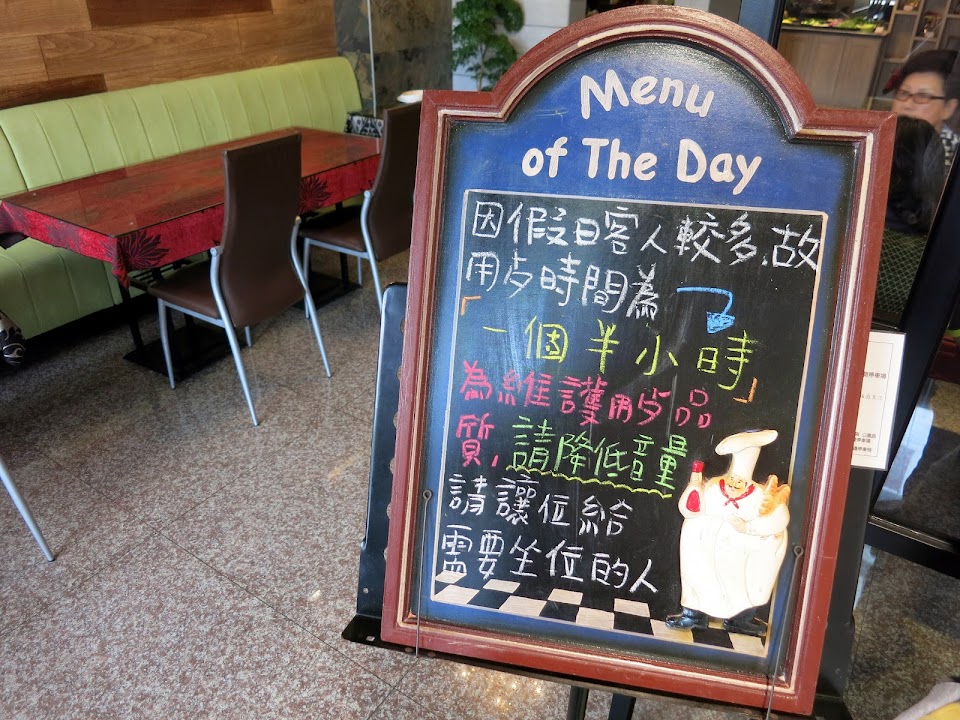 Menu
of The Day
因假日客人較多,故
用歺時間為
「一個半小時」
為維護用歺品
質,請降低音量
請讓位給
需要坐位的人